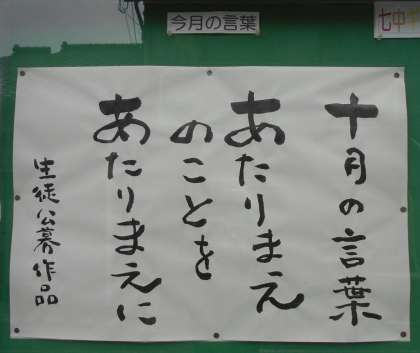 今月の言葉
七中
十月の言葉
あたりまえ
のことを
あたりまえに
生徒公募作品